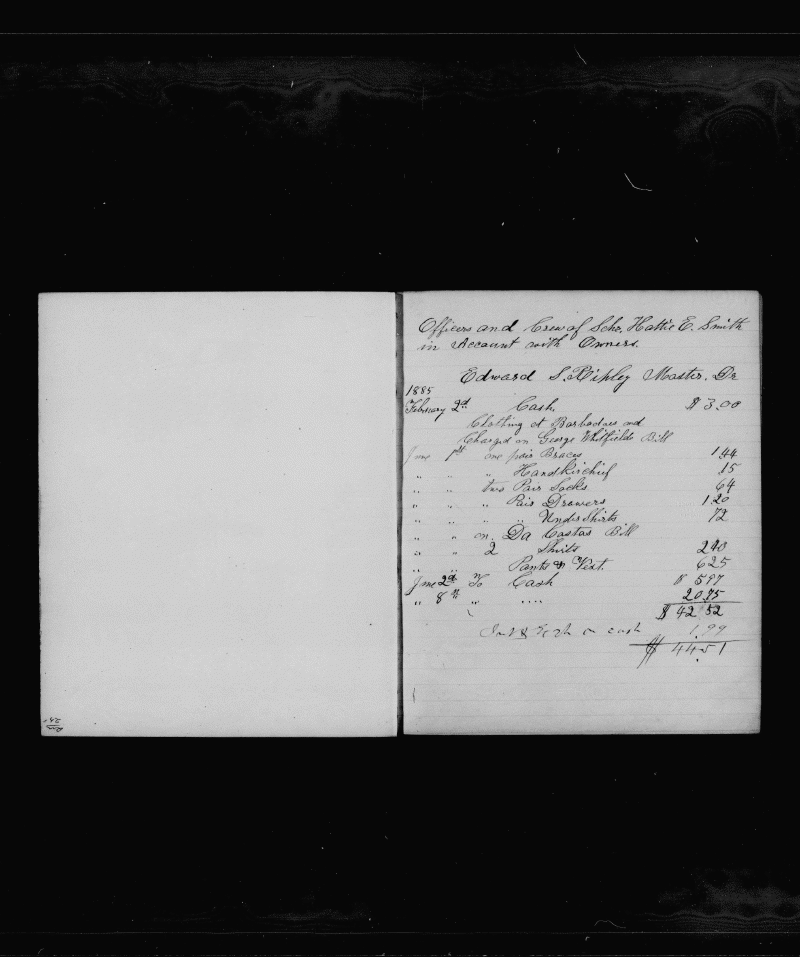 Officers and Crew of Schr. Hattie E. Smith
in Account with Owners.
Edward S. Ripley Master. Dr
1885
February 2d Cash. $ 3.00
Clothing at Barbadoes and
Charged on George Whitfields Bill
June 1st one pair Braces 1 44
" " " Handkirchief 15
" " two Pair Socks 64
" " " Pair Drawers 1 20
" " " " Under Shirts 72
" " on Da Costas Bill
" " 2 Shirts 2 40
" " Pants & Vest. 6 25
June 2d To Cash $ 5 97
" 8th " " " 20.75
$ 42 52
& on cash 1.99
$ 44.51